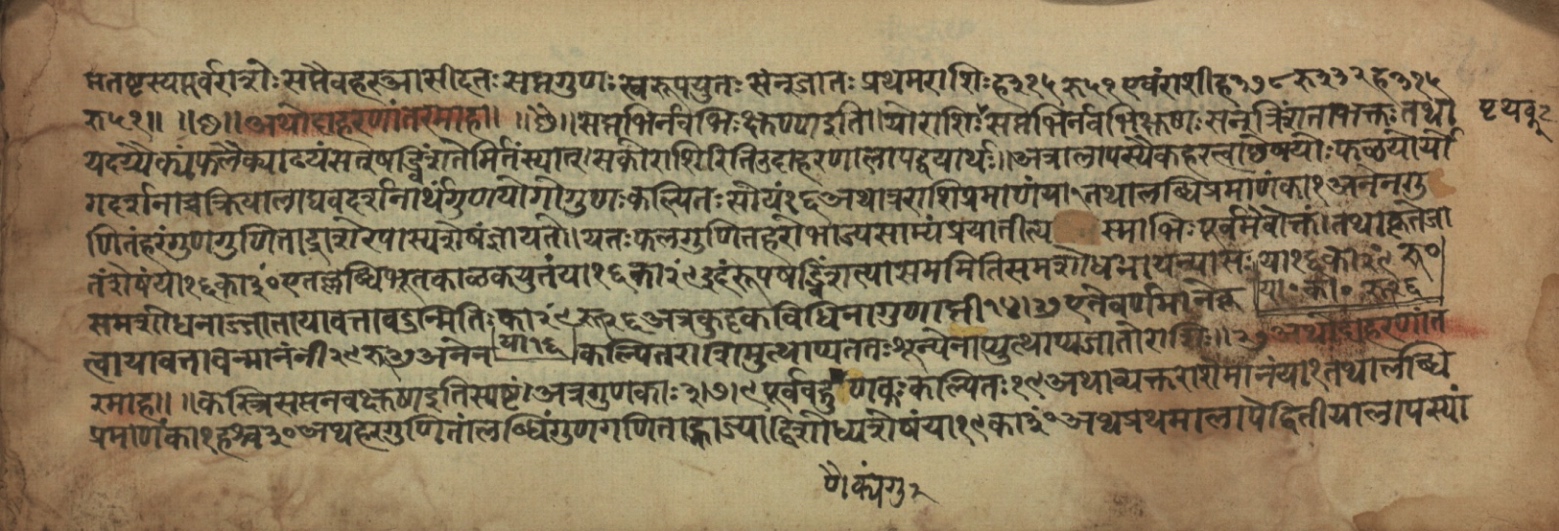 प्ततष्टस्यपूर्वराशेः सप्तैवहरआसीदतः सप्तगुणः स्वरूपयुतः सन्जातः प्रथमराशिः ह३१५ रू५१ एवंराशीह३७८ रू३३२ ह३१५
रू५१॥ ॥छ॥ अथोदाहरणांतरमाह॥ ॥छ॥ सप्तभिर्नवभिःक्षुण्णइति॥योराशिःसप्तभिर्नवभिःक्षुणः सन्त्रिंशताभक्तः तथा
यदग्रैक्यंफलैक्याढ्यंसत्षड्विंशतेर्मितंस्यात्।सकोराशिरितिउदाहरणालापद्वयार्थः॥अत्रालापस्यैकहरत्वाछेषयोःफलयोर्यो
गदर्शनाच्चक्रियालाघवदर्शनार्थंगुणयोगोगुणःकल्पितः सोयं१६ अथात्रराशिप्रमाणंया१तथालब्धिप्रमाणंका१ अनेनगु
णितंहरंगुणगुणिताद्राशेरपास्यशेषंज्ञायते॥यतःफलगुणितहरोभाज्यसाम्यंप्रयातीत्य स्माभिःपूर्वमेवोक्तं।तथाकृतेजा
तंशेषंया१६का३०एतल्लब्धिभूतकाळकयुतंया१६का२९इदंरूपषड्विंशत्यासममितिसमशोधनायन्यासः या१६का२९रू०
समशोधनाज्जातायावत्तावदुन्मितिः का२९रू२६ अत्रकुट्टकविधिनागुणाप्ती१४।२७एतेवर्णमानेक्ल या०का०रू२६
त्वायावत्तावन्मानंनी२९रू२७अनेन या१६ कल्पितराशिमुत्थाप्यततःशून्येनाप्युत्थाप्यजातोराशिः॥२७अथोदाहरणांत
रमाह॥ ॥कस्त्रिसप्तनवक्षुण्णइतिस्पष्टं।अत्रगुणकाः३।७।९पूर्ववद्गुणैक्यःकल्पितः१९अथाव्यक्तराशेर्मानंया१तथालब्धि
प्रमाणंका१हरश्च३०अथहरगुणितांलब्धिंगुणगणिताद्भाज्याद्विशोध्यशेषंया१९का३०अथप्रथमालापेद्वितीयालापस्यां
णैक्यंगु२